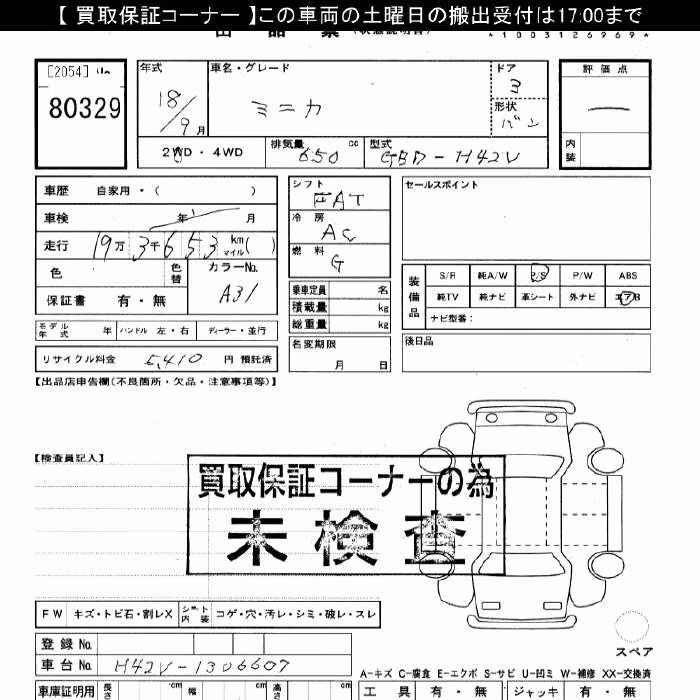 【 買取保証コーナー 】この車両の土曜日の搬出受付は17:00まで
*1003126969*
[2054]
80329
年式 車名・グレード ドア 評価点
18/9月 ミニカ 3
形状
バン
内装
2WD・4WD 排気量 650 cc 型式 GBD-H42V
車歴 自家用・( )
車検 年 月
走行 19万3千653 km マイル( )
色 色替 カラーNo. A31
保証書 有・無
シフト FAT
冷房 AC
燃料 G
セールスポイント
乗車定員 名
積載量 kg
総重量 kg
装備品
S/R 純A/W P/S P/W ABS
純TV 純ナビ 革シート 外ナビ エアB
ナビ型番:
モデル年式 年 ハンドル 左・右 ディーラー・並行
名変期限 月 日
後日品
リサイクル料金 6,410 円 預託済
【出品店申告欄(不良箇所・欠品・注意事項等)】
【検査員記入】
買取保証コーナーの為
未検査
FW キズ・トビ石・割レX シート内装 コゲ・穴・汚レ・シミ・破レ・スレ
登録 No.
車台 No. H42V-1306607
スペア
A-キズ C-腐食 E-エクボ S-サビ U-凹ミ W-補修 XX-交換済
車庫証明用 長さ cm 幅 cm 高さ cm 工具 有・無 ジャッキ 有・無